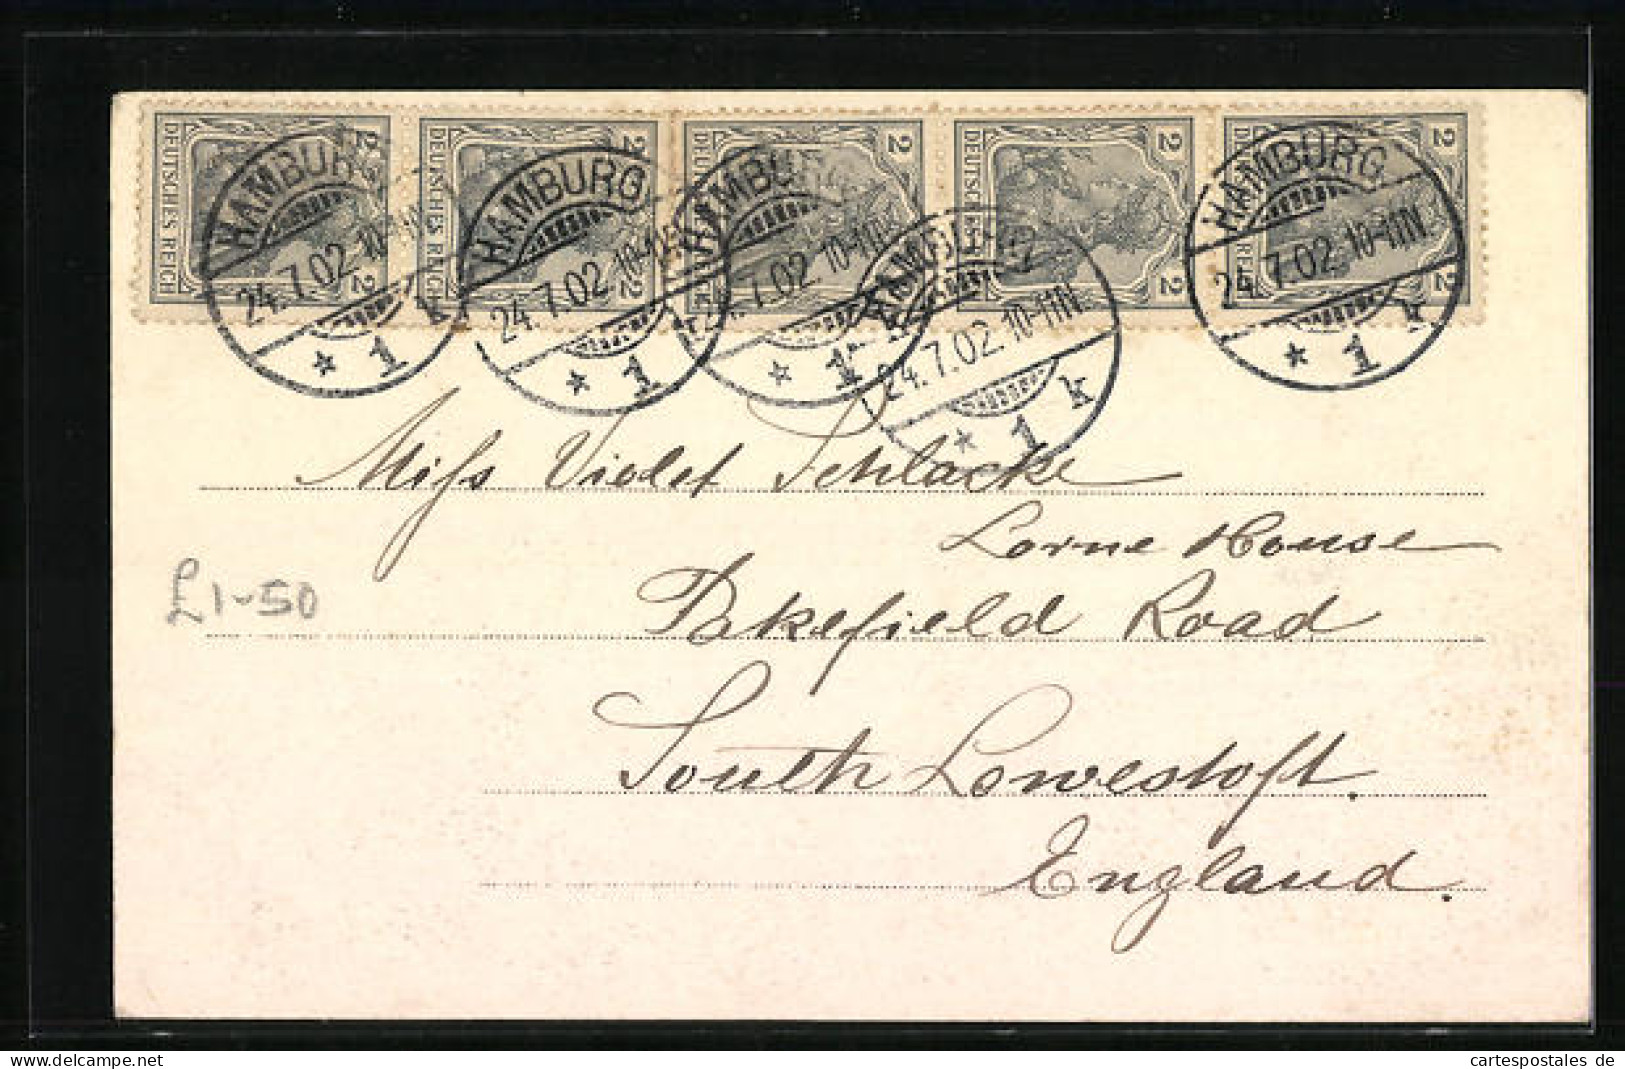 2 DEUTSCHES REICH 2
2 DEUTSCHES REICH 2
2 2
2 DEUTSCHES REICH 2
2 2
HAMBURG
24.7.02.10-11
* 1 k
HAMBURG
24.7.02.10-11
* 1
HAMBURG
7.02.10-11
* 1
HAMBURG
24.7.02.10-11N.
* 1 k
HAMBURG
24.7.02.10-11N.
* 1 k
Miss Violet Schlacke
Lorne House
£1-50
Pakefield Road
South Lowestoft.
England.
cartespostales de